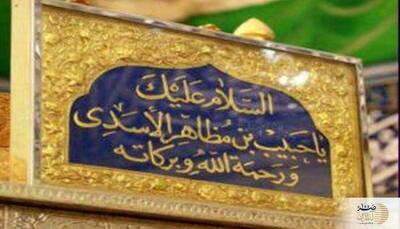 السلام عليك
يا حبيب بن مظاهر الأسدي
ورحمة الله وبركاته